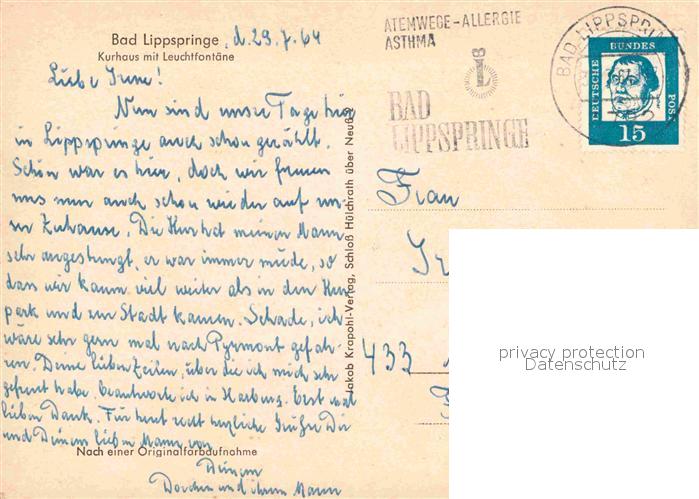 Bad Lippspringe, d. 29.7.64
Kurhaus mit Leuchtfontäne
Liebe Irene!
Nun sind unsre Tage hier
in Lippspringe auch schon gezählt.
Schön war es hier, doch wir freuen
uns nun auch schon wieder auf un-
ser Zuhause. Die Kur hat meinen Mann
sehr angestrengt, er war immer müde, so
dass wir kaum viel weiter als in den Kur-
park und zur Stadt kamen. Schade, ich
wäre sehr gern mal nach Pyrmont gefah-
ren. Deine lieben Zeilen, über die ich mich sehr
gefreut habe, beantworte ich in Harburg. Erst mal
lieben Dank. Für heut recht herzliche Grüße Dir
und Deinem lieben Mann von
Nach einer Originalfarbaufnahme
Deinem
Dorchen und ihrem Mann
Jakob Krapohl-Verlag, Schloß Hülchrath über Neuß 2
ATEMWEGE-ALLERGIE
ASTHMA
L
BAD
LIPPSPRINGE
BAD LIPPSPRIN
DEUTSCHE BUNDESPOST
15
Frau
433
privacy protection
Datenschutz